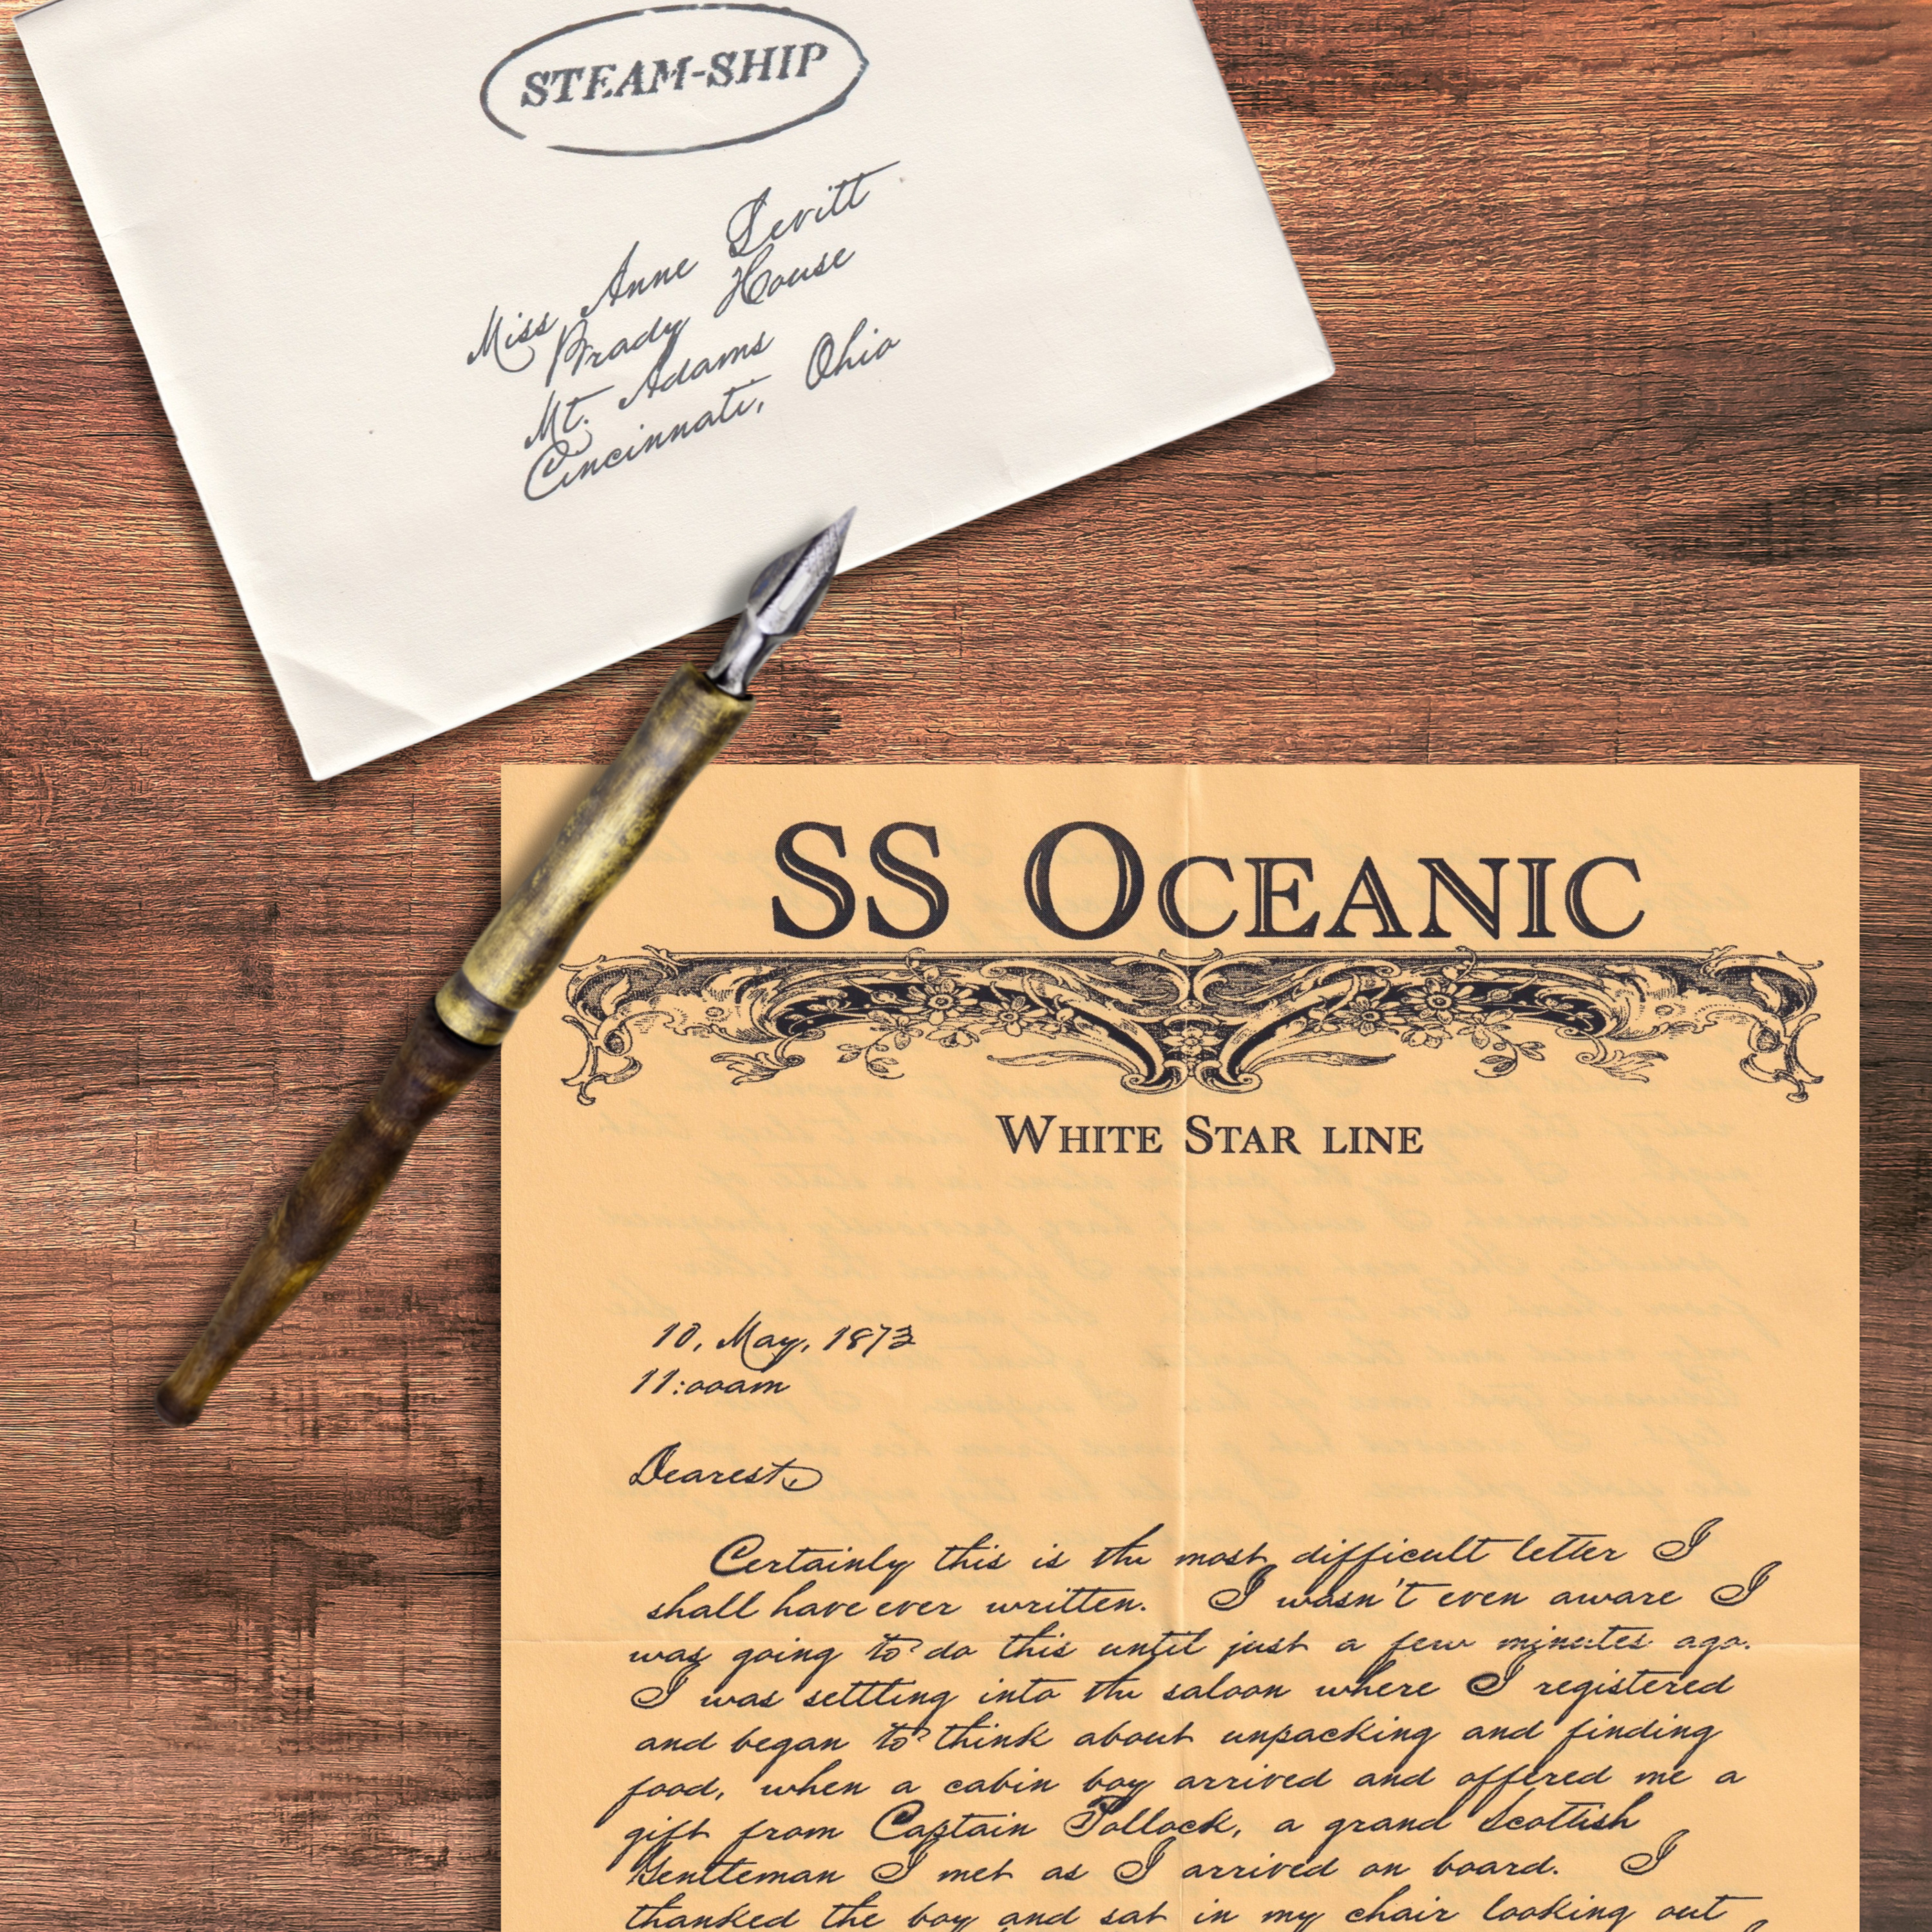 STEAM-SHIP
Miss Anne Levitt
Brady House
Mt. Adams
Cincinnati, Ohio
SS OCEANIC
WHITE STAR LINE
10, May, 1873
11:00am
Dearest,
Certainly this is the most difficult letter I
shall have ever written. I wasn't even aware I
was going to do this until just a few minutes ago.
I was settling into the saloon where I registered
and began to think about unpacking and finding
food, when a cabin boy arrived and offered me a
gift from Captain Pollock, a grand Scottish
Gentleman I met as I arrived on board. I
thanked the boy and sat in my chair looking out